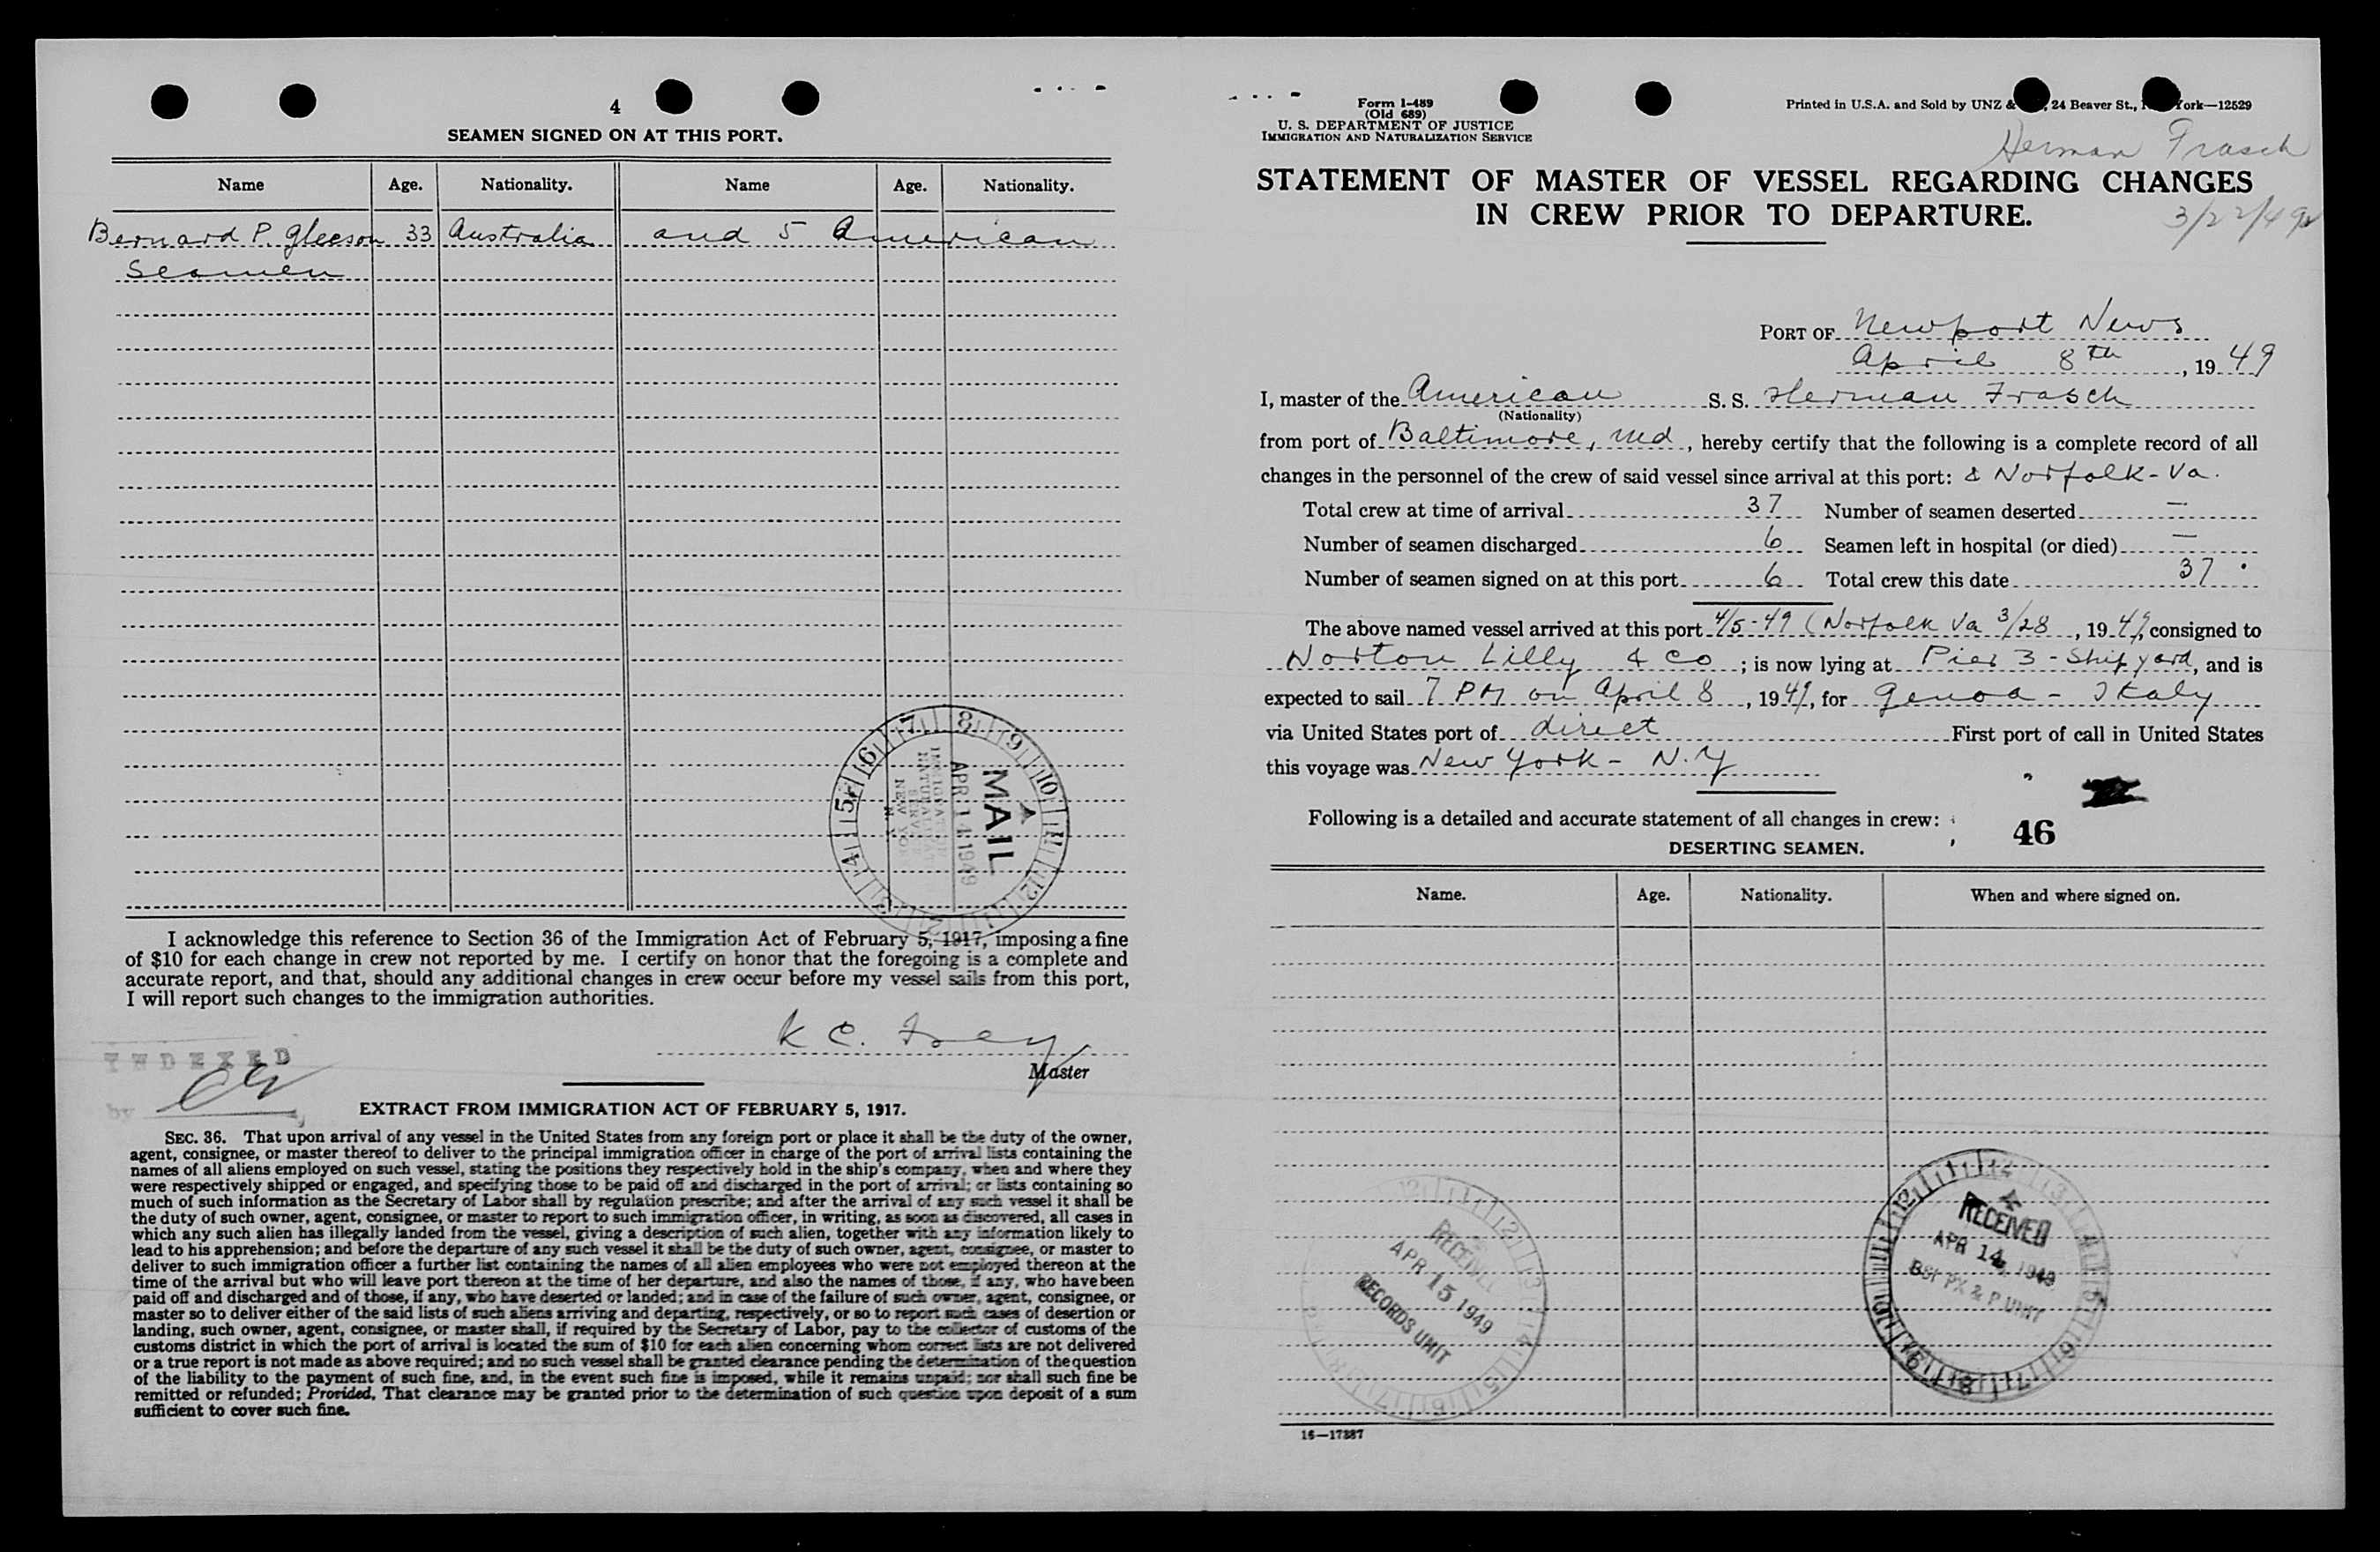 4
SEAMEN SIGNED ON AT THIS PORT.
Name Age. Nationality. Name Age. Nationality.
Bernard P. Gleeson 33 Australia and 5 American
Seamen
MAIL
APR 14 1949
I acknowledge this reference to Section 36 of the Immigration Act of February 5, 1917, imposing a fine
of $10 for each change in crew not reported by me. I certify on honor that the foregoing is a complete and
accurate report, and that, should any additional changes in crew occur before my vessel sails from this port,
I will report such changes to the immigration authorities.
K C. Frey
Master
INDEXED
by
EXTRACT FROM IMMIGRATION ACT OF FEBRUARY 5, 1917.
SEC. 36. That upon arrival of any vessel in the United States from any foreign port or place it shall be the duty of the owner,
agent, consignee, or master thereof to deliver to the principal immigration officer in charge of the port of arrival lists containing the
names of all aliens employed on such vessel, stating the positions they respectively hold in the ship's company, when and where they
were respectively shipped or engaged, and specifying those to be paid off and discharged in the port of arrival; or lists containing so
much of such information as the Secretary of Labor shall by regulation prescribe; and after the arrival of any such vessel it shall be
the duty of such owner, agent, consignee, or master to report to such immigration officer, in writing, as soon as discovered, all cases in
which any such alien has illegally landed from the vessel, giving a description of such alien, together with any information likely to
lead to his apprehension; and before the departure of any such vessel it shall be the duty of such owner, agent, consignee, or master to
deliver to such immigration officer a further list containing the names of all alien employees who were not employed thereon at the
time of the arrival but who will leave port thereon at the time of her departure, and also the names of those, if any, who have been
paid off and discharged and of those, if any, who have deserted or landed; and in case of the failure of such owner, agent, consignee, or
master so to deliver either of the said lists of such aliens arriving and departing, respectively, or so to report such cases of desertion or
landing, such owner, agent, consignee, or master shall, if required by the Secretary of Labor, pay to the collector of customs of the
customs district in which the port of arrival is located the sum of $10 for each alien concerning whom correct lists are not delivered
or a true report is not made as above required; and no such vessel shall be granted clearance pending the determination of the question
of the liability to the payment of such fine, and, in the event such fine is imposed, while it remains unpaid; nor shall such fine be
remitted or refunded; Provided, That clearance may be granted prior to the determination of such question upon deposit of a sum
sufficient to cover such fine.
Form I-489
(Old 689)
U. S. DEPARTMENT OF JUSTICE
IMMIGRATION AND NATURALIZATION SERVICE
Printed in U.S.A. and Sold by UNZ & , 24 Beaver St., York—12529
Herman Frasch
STATEMENT OF MASTER OF VESSEL REGARDING CHANGES
IN CREW PRIOR TO DEPARTURE.
3/22/49
PORT OF Newport News
April 8th, 1949
I, master of the American S. S. Herman Frasch
(Nationality)
from port of Baltimore, Md, hereby certify that the following is a complete record of all
changes in the personnel of the crew of said vessel since arrival at this port: & Norfolk - Va.
Total crew at time of arrival 37 Number of seamen deserted —
Number of seamen discharged 6 Seamen left in hospital (or died) —
Number of seamen signed on at this port 6 Total crew this date 37
The above named vessel arrived at this port 4/5-49 (Norfolk Va 3/28, 1949, consigned to
Norton Lilly & Co; is now lying at Pier 3 - Shipyard, and is
expected to sail 7 PM on April 8, 1949, for Genoa - Italy
via United States port of direct First port of call in United States
this voyage was New York - N.Y
Following is a detailed and accurate statement of all changes in crew:
46
DESERTING SEAMEN.
Name. Age. Nationality. When and where signed on.
RECEIVED
APR 15 1949
RECORDS UNIT
RECEIVED
APR 14 1949
BSI PX & P UNIT
16—17387